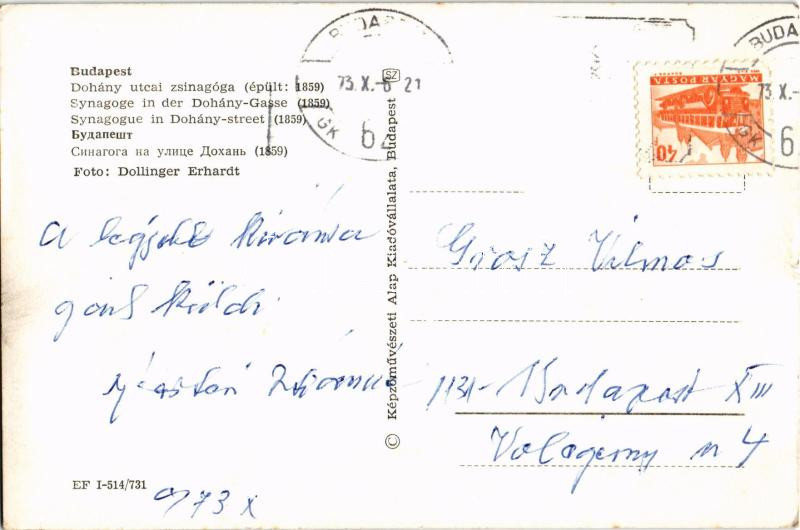 Budapest
Dohány utcai zsinagóga (épült: 1859)
Synagoge in der Dohány-Gasse (1859)
Synagogue in Dohány-street (1859)
Будапешт
Синагога на улице Дохань (1859)
Foto: Dollinger Erhardt
a legjobbat kívánva
küldi
73 X
EF I-514/731
© Képzőművészeti Alap Kiadóvállalata, Budapest
SZ
BUDAP
73.X.-6 21
GK
62
MAGYAR POSTA
40
BUDA
73.X.-
GK
6
Grosz Vilmos
1131- Budapest XIII
4